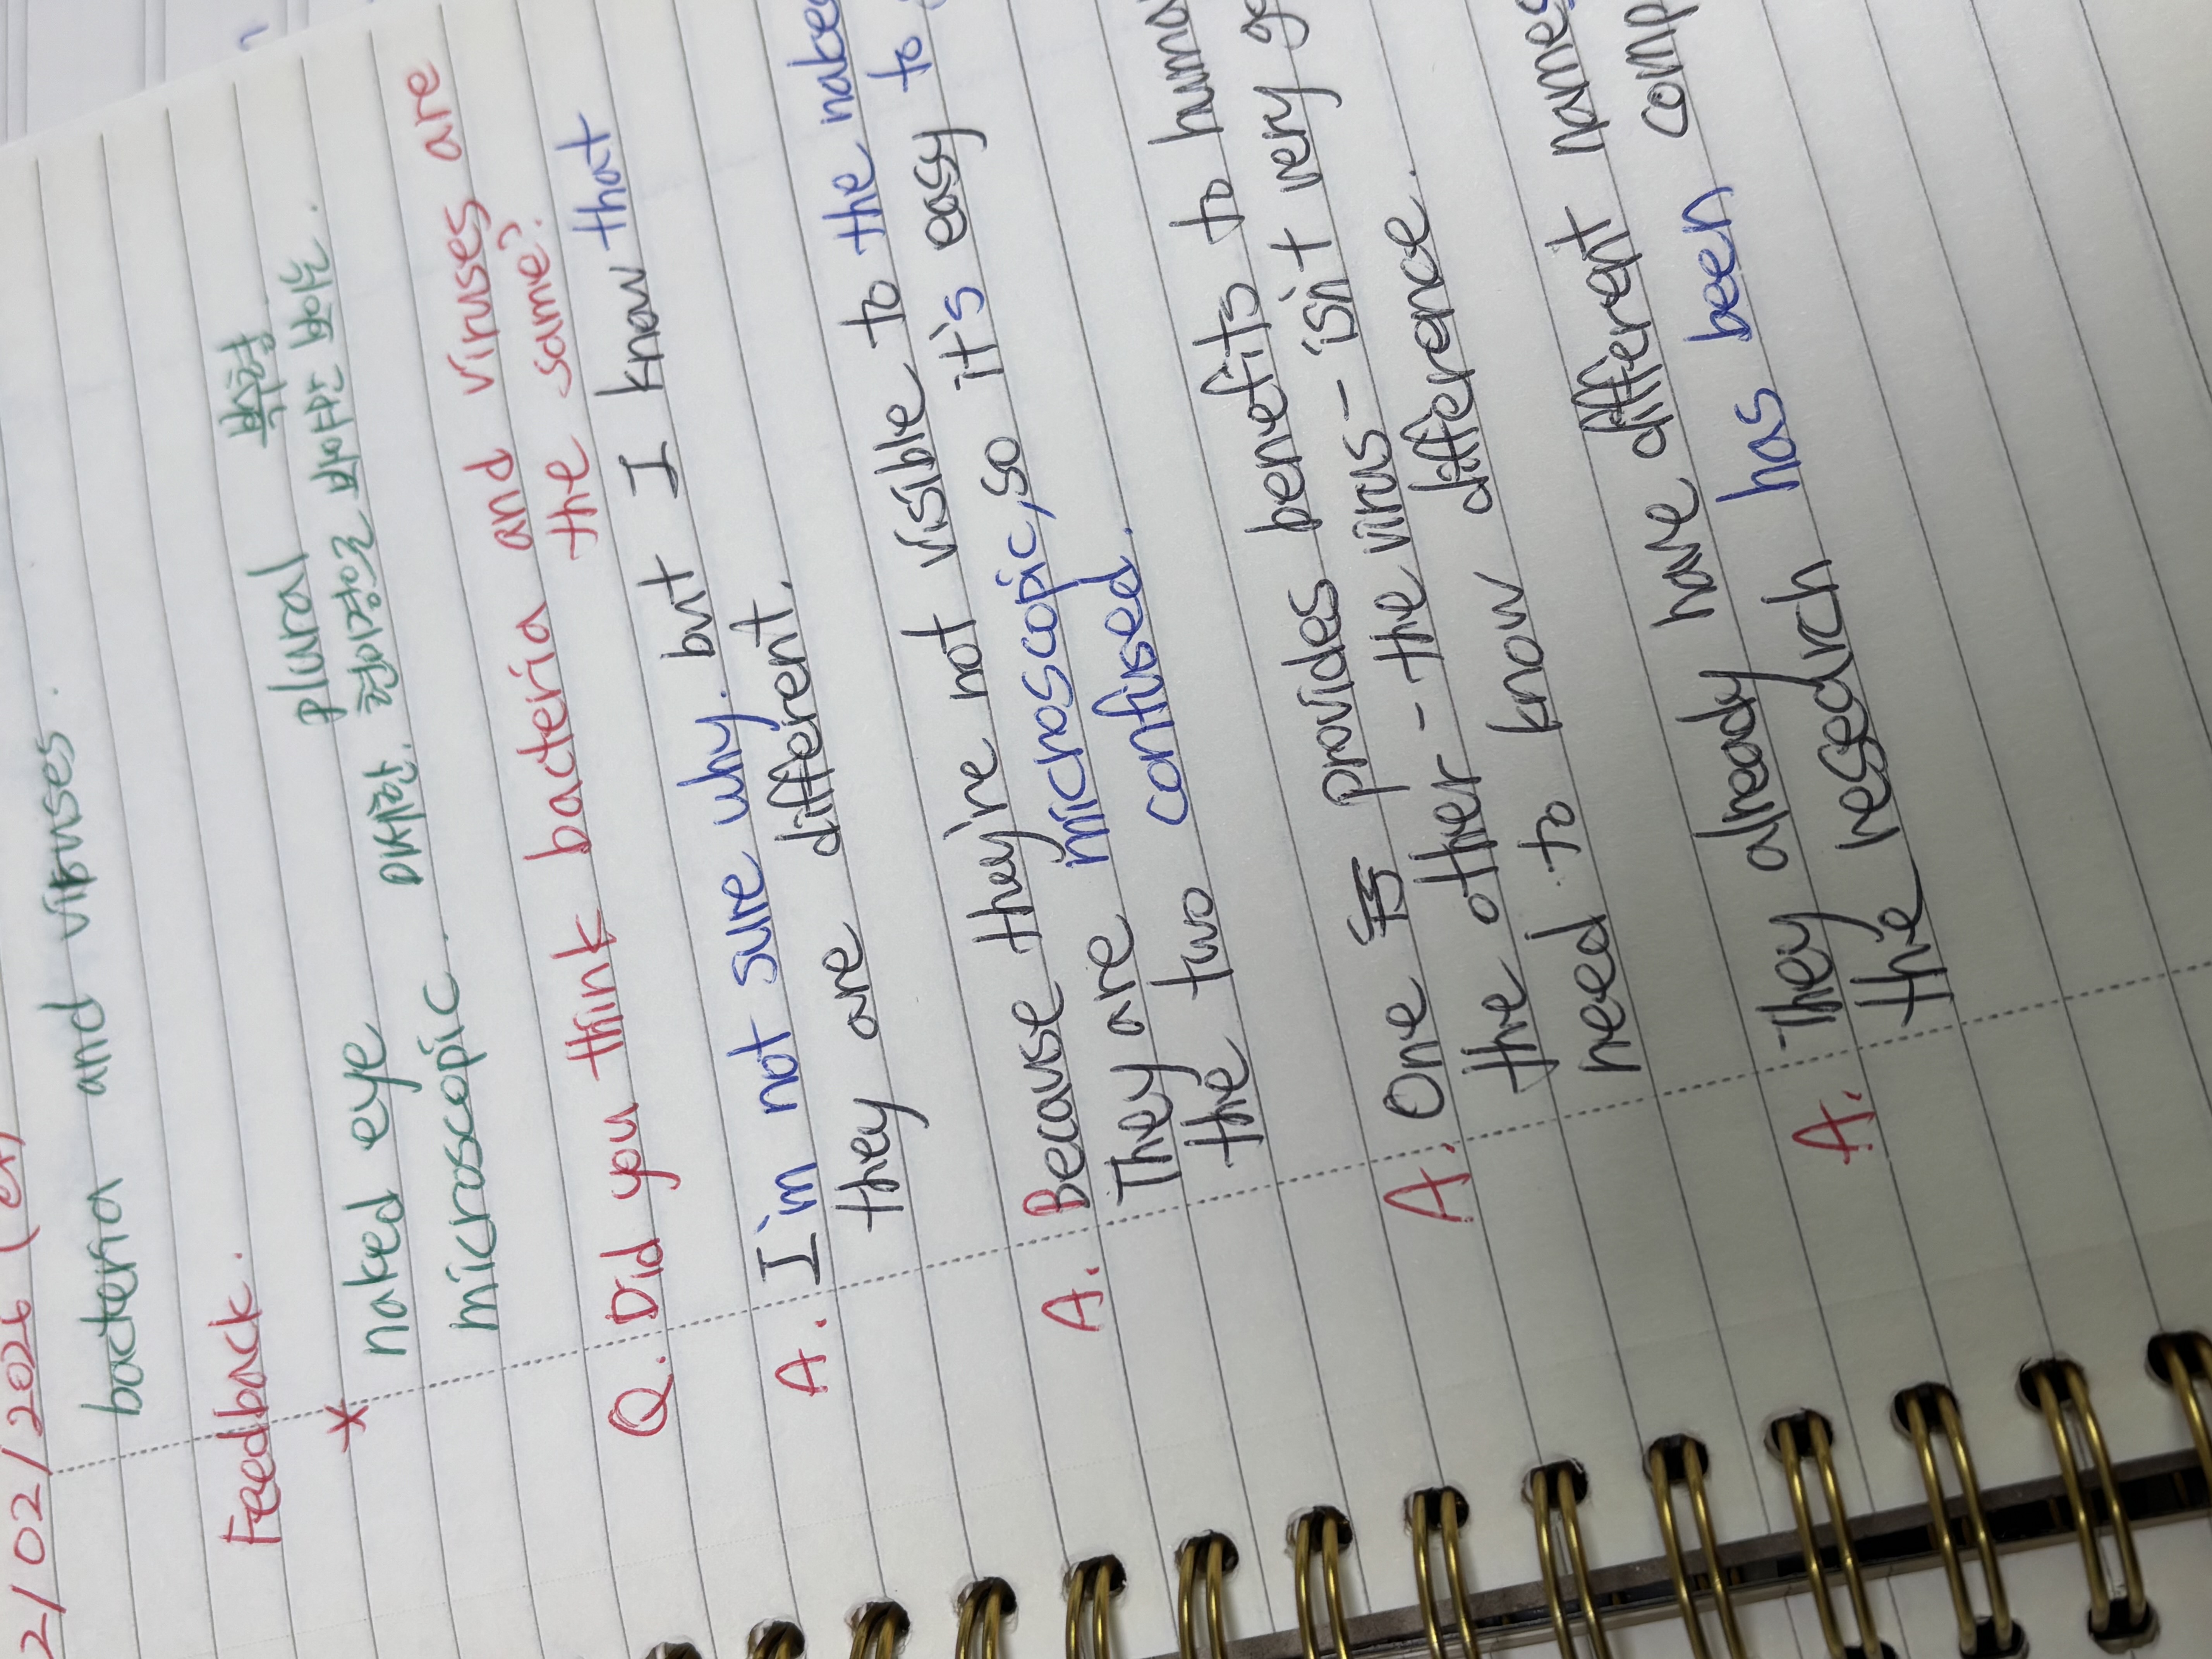 2/02/2026
bacteria and viruses.
Feedback.
plural 복수형
* naked eye 현미경으로 봐야만 간신히 보이는
microscopic. 미세한.
Q. Did you think bacteria and viruses are
the same?
A. I'm not sure why. but I know that
they are different.
A. Because they're not visible to the naked
They are microscopic, so it's easy to
the two confused.
A. One provides benefits to
the other - the virus - isn't very
need to know difference.
A. They already have different names
the research has been